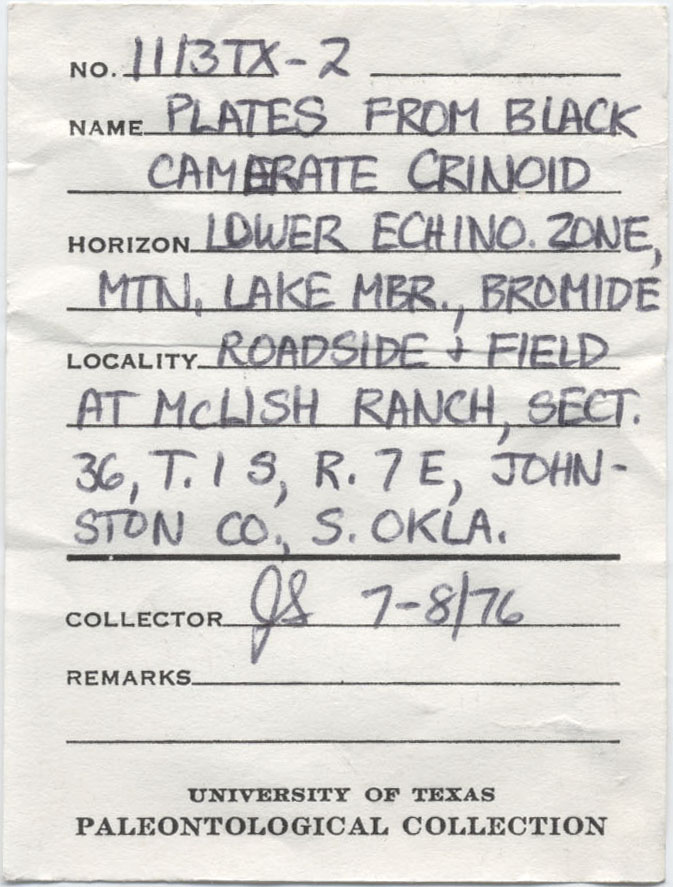 NO. 1113TX-2
NAME PLATES FROM BLACK
CAMERATE CRINOID
HORIZON LOWER ECHINO. ZONE,
MTN. LAKE MBR., BROMIDE
LOCALITY ROADSIDE + FIELD
AT McLISH RANCH, SECT.
36, T. 1 S, R. 7 E, JOHN-
STON CO., S. OKLA.
COLLECTOR JS 7-8/76
REMARKS
UNIVERSITY OF TEXAS
PALEONTOLOGICAL COLLECTION